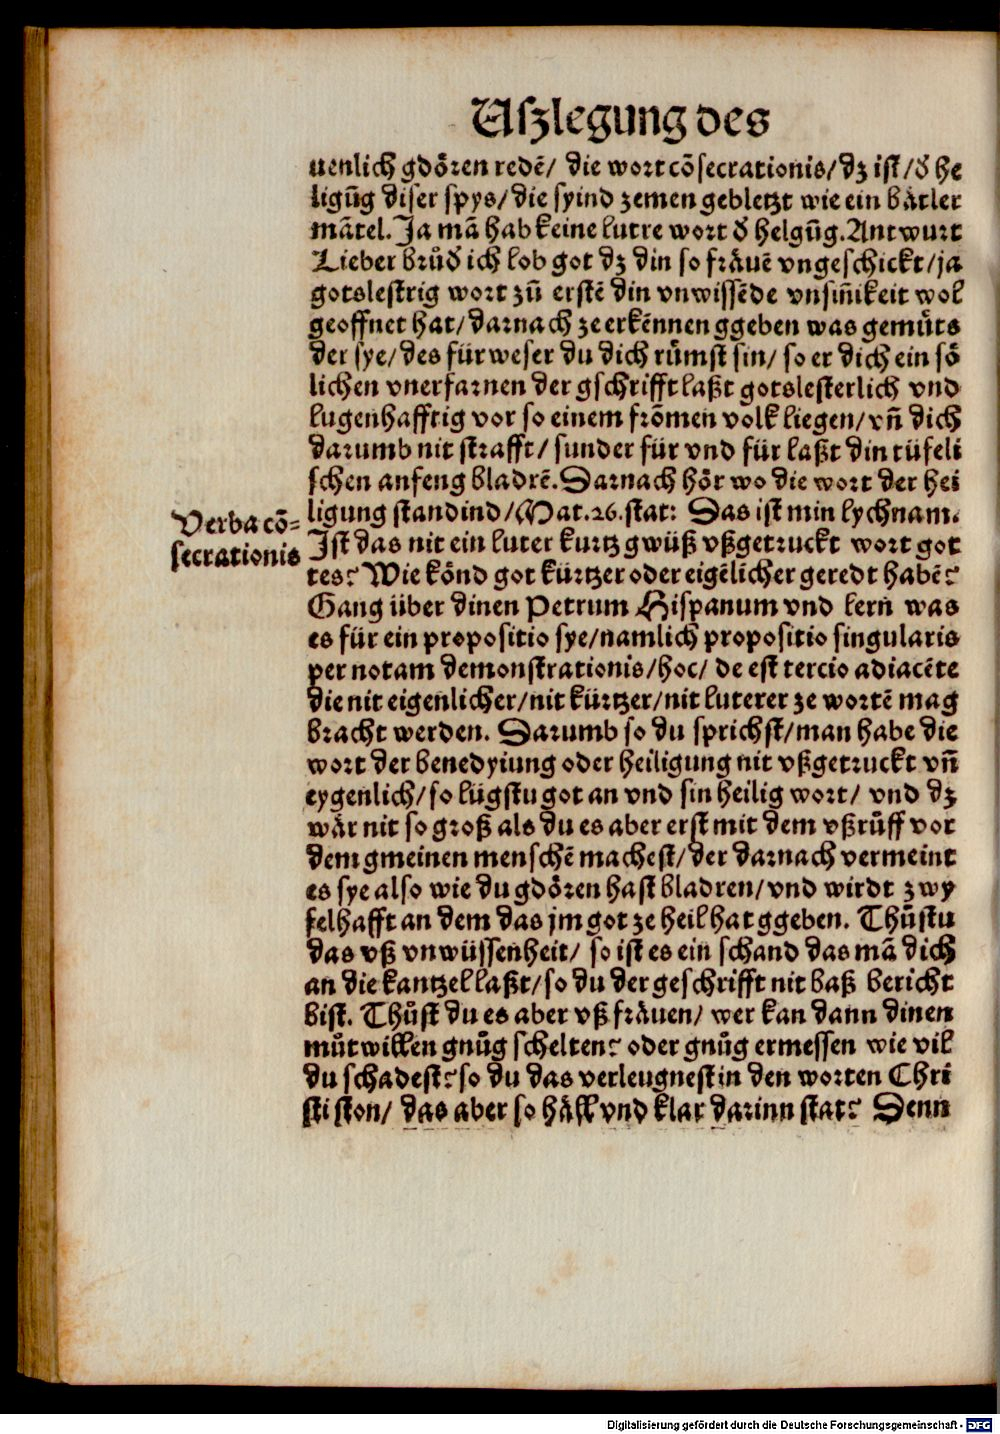 Uſzlegung des
uenlich gdören redē/ die wort cōſecrationis/dz iſt/ď he
ligūg diſer ſpys/die ſyind zemen gebletzt wie ein bätler
mātel. Ja mā hab keine lutre wort ď helgūg. Antwurt
Lieber brůď ich lob got dz din ſo fräuē vngeſchickt/ja
gotsleſtrig wort zů erſtē din vnwiſſēde vnſiñikeit wol
geoffnet hat/darnach ze erkēnnen ggeben was gemüts
der ſye/des fürweſer du dich rümſt ſin/ ſo er dich ein ſö
lichen vnerfarnen der gſchrifft laßt gotsleſterlich vnd
lugenhafftig vor ſo einem frōmen volk liegen/vñ dich
darumb nit ſtrafft/ ſunder für vnd für laßt din tüfeli
ſchen anfeng bladrē. Darnach hör wo die wort der hei
ligung ſtandind/Mat.26.ſtat: Das iſt min lychnam.
Verba cō=
ſecrationis
Iſt das nit ein luter kurtz gwüß vßgetruckt wort got
tes? Wie könd got kürtzer oder eigēlicher geredt habē?
Gang über dinen Petrum Hiſpanum vnd lern was
es für ein propoſitio ſye/namlich propoſitio ſingularis
per notam demonſtrationis/hoc/ de eſt tercio adiacēte
die nit eigenlicher/nit kürtzer/nit luterer ze wortē mag
bracht werden. Darumb ſo du ſprichſt/man habe die
wort der benedyiung oder heiligung nit vßgetruckt vñ
eygenlich/ſo lügſtu got an vnd ſin heilig wort/ vnd dz
wär nit ſo groß als du es aber erſt mit dem vßrůff vor
dem gmeinen menſchē macheſt/der darnach vermeint
es ſye alſo wie du gdören haſt bladren/vnd wirdt zwy
felhafft an dem das jm got ze heil hat ggeben. Thůſtu
das vß vnwüſſenheit/ ſo iſt es ein ſchand das mā dich
an die kantzel laßt/ſo du der geſchrifft nit baß bericht
biſt. Thůſt du es aber vß fräuen/ wer kan dann dinen
můtwillen gnůg ſchelten? oder gnůg ermeſſen wie vil
du ſchadeſt? ſo du das verleugneſt in den worten Chri
ſti ſton/ das aber ſo häll vnd klar darinn ſtat? Denn
Digitalisierung gefördert durch die Deutsche Forschungsgemeinschaft - DFG